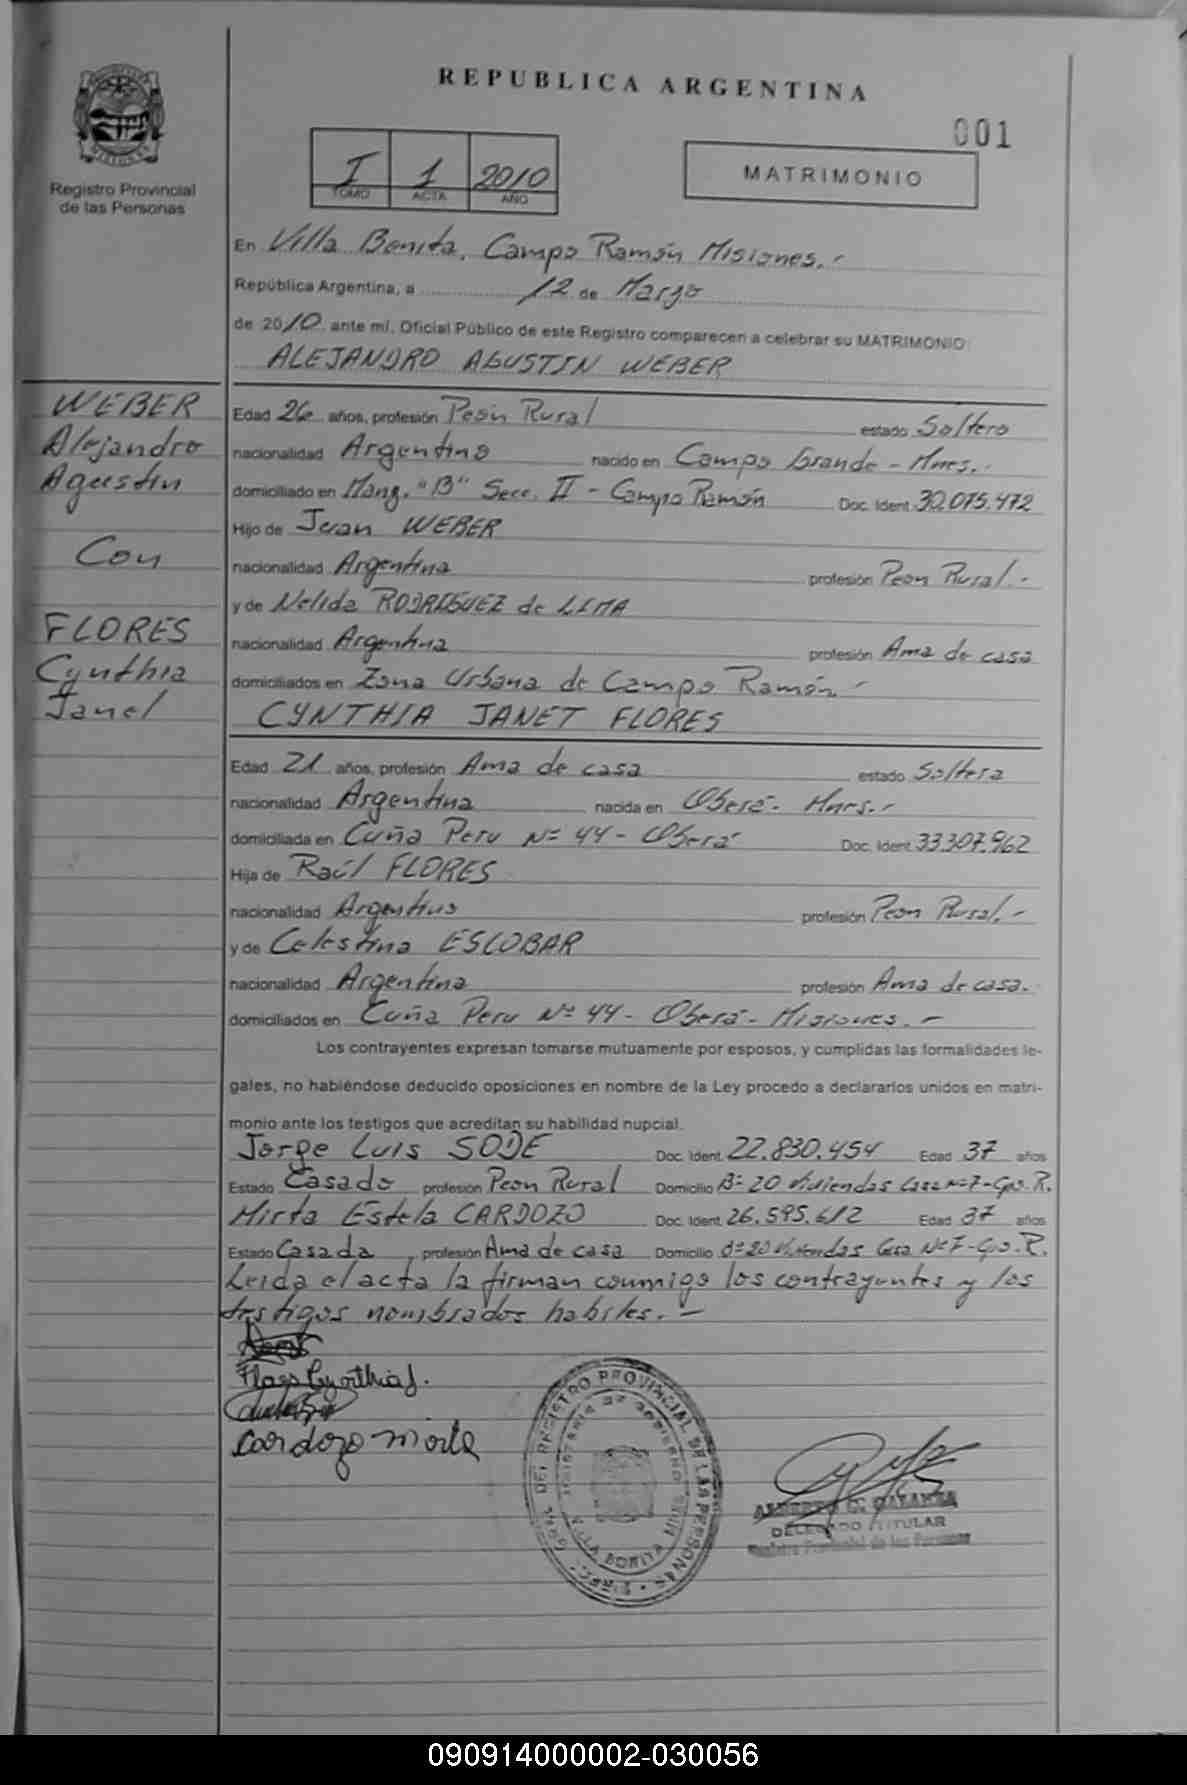 REPUBLICA ARGENTINA
001
I 1 2010
TOMO ACTA AÑO
MATRIMONIO
MISIONES
Registro Provincial
de las Personas
En Villa Bonita, Campo Ramón Misiones.-
República Argentina, a 12 de Marzo
de 2010 ante mí, Oficial Público de este Registro comparecen a celebrar su MATRIMONIO:
ALEJANDRO AGUSTIN WEBER
WEBER
Alejandro
Agustin
Con
FLORES
Cynthia
Janet
Edad 26 años, profesión Peón Rural estado Soltero
nacionalidad Argentino nacido en Campo Grande - Mnes.-
domiciliado en Manz. "B" Secc. II - Campo Ramón Doc. Ident. 30.075.472
Hijo de Juan WEBER
nacionalidad Argentina profesión Peon Rural.-
y de Nelida RODRIGUEZ de LIMA
nacionalidad Argentina profesión Ama de casa
domiciliados en Zona Urbana de Campo Ramón.-
CYNTHIA JANET FLORES
Edad 21 años, profesión Ama de casa estado Soltera
nacionalidad Argentina nacida en Oberá - Mnes.-
domiciliada en Cuña Peru Nº 44 - Oberá Doc. Ident. 33.307.962
Hija de Raúl FLORES
nacionalidad Argentino profesión Peon Rural.-
y de Celestina ESCOBAR
nacionalidad Argentina profesión Ama de casa.
domiciliados en Cuña Peru Nº 44 - Oberá - Misiones.-
Los contrayentes expresan tomarse mutuamente por esposos, y cumplidas las formalidades le-
gales, no habiéndose deducido oposiciones en nombre de la Ley procedo a declararlos unidos en matri-
monio ante los testigos que acreditan su habilidad nupcial.
Jorge Luis SODE Doc. Ident. 22.830.454 Edad 37 años
Estado Casado profesión Peon Rural Domicilio Bº 20 Viviendas Casa Nº 7 - Cpo. R.
Mirta Estela CARDOZO Doc. Ident. 26.595.612 Edad 37 años
Estado Casada, profesión Ama de casa Domicilio Bº 20 Viviendas Casa Nº 7 - Cpo. R.
Leida el acta la firman conmigo los contrayentes y los
testigos nombrados habiles.-
Flores Cynthia J.
Cardozo Mirta
REGISTRO PROVINCIAL DE LAS PERSONAS
MINISTERIO DE GOBIERNO
VILLA BONITA
DELEGADO TITULAR
Registro Provincial de las Personas
090914000002-030056